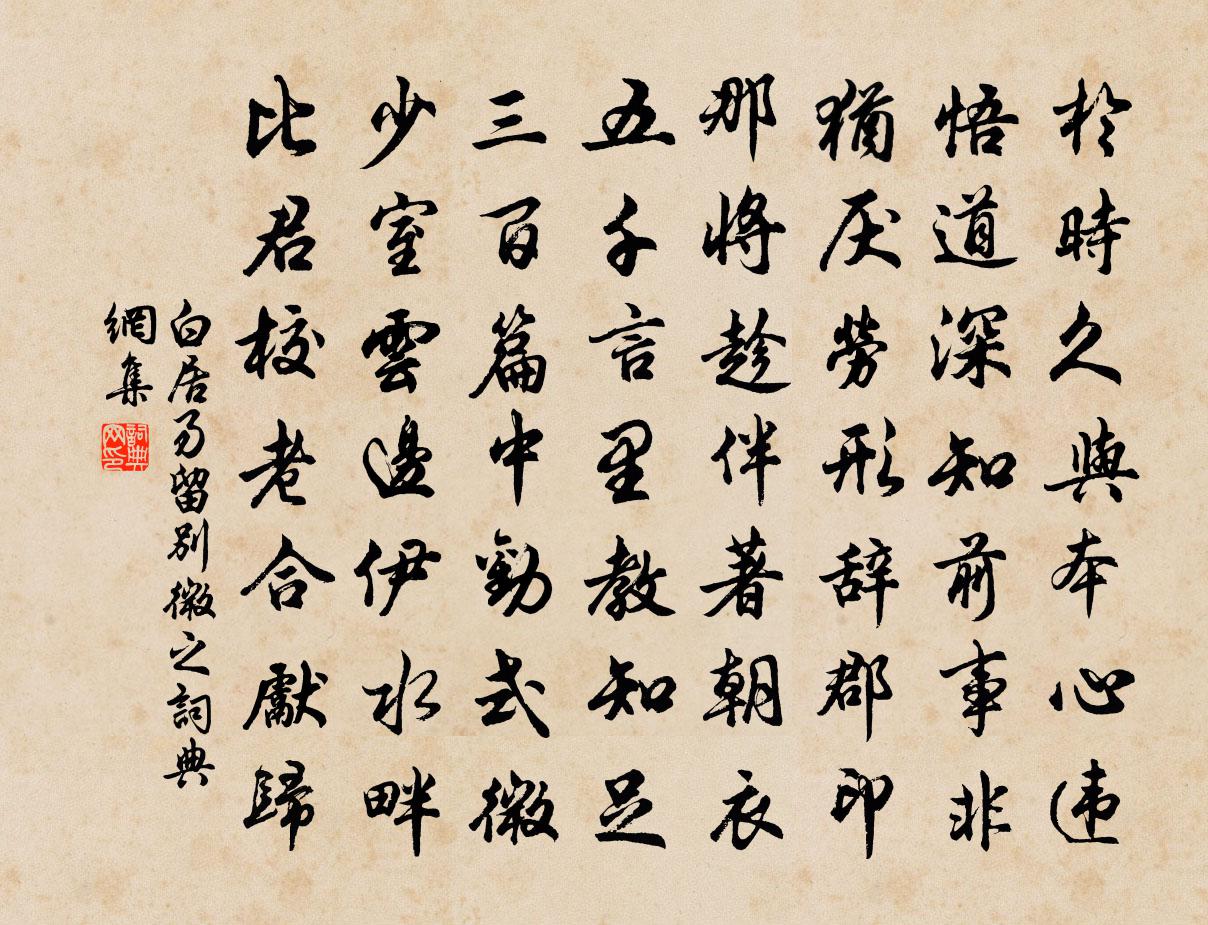 於時久與本心違
悟道深知前事非
猶厌勞形辞郡印
那将趁伴著朝衣
五千言里教知足
三百篇中勸式微
少室雲邊伊水畔
比君校老合獻歸
白居易留別微之詞典
網集
詞典
网印